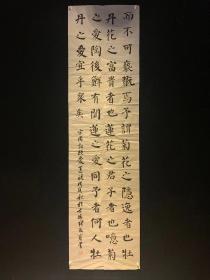 而不可褻翫焉予謂菊花之隱逸者也牡
丹花之富貴者也蓮花之君子者也噫菊
之愛陶後鮮有聞蓮之愛同予者何人牡
丹之愛宜乎衆矣
宋周敦頤愛蓮說